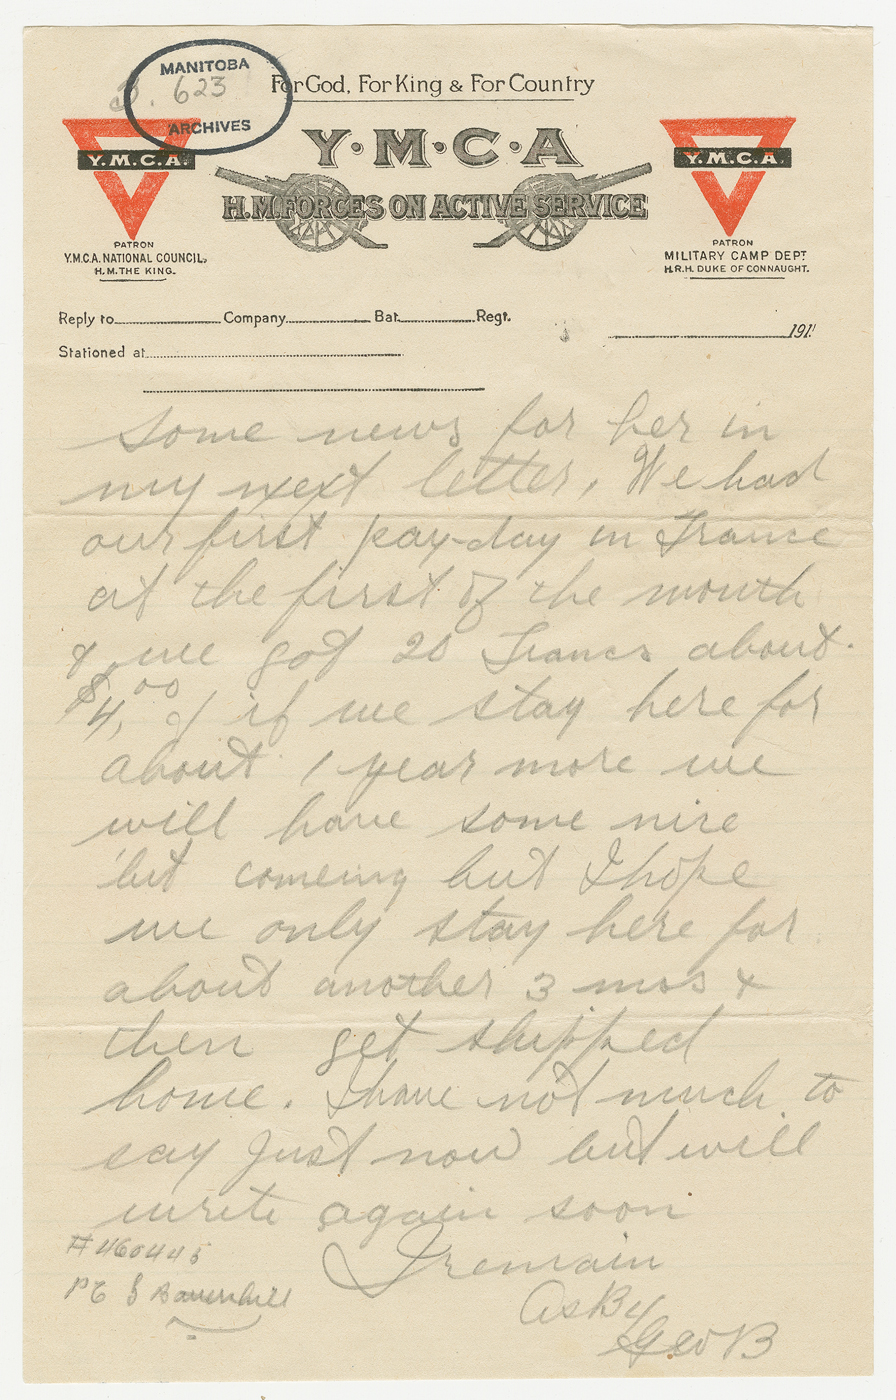 MANITOBA
B. 623
ARCHIVES
For God, For King & For Country
Y.M.C.A.
Y·M·C·A
Y.M.C.A.
H.M. FORCES ON ACTIVE SERVICE
PATRON
Y.M.C.A. NATIONAL COUNCIL,
H.M. THE KING.
PATRON
MILITARY CAMP DEPT
H.R.H. DUKE OF CONNAUGHT.
Reply to Company Bat. Regt.
191
Stationed at
Some news for her in
my next letter, We had
our first pay-day in France
at the first of the month
& we got 20 Francs about
$4,00 & if we stay here for
about 1 year more we
will have some nice
bit comeing but I hope
we only stay here for
about another 3 mos &
then get shipped
home. I have not much to
say Just now but will
write again soon
I remain
As By
Geo B
#460445
Pte G Bamenhill